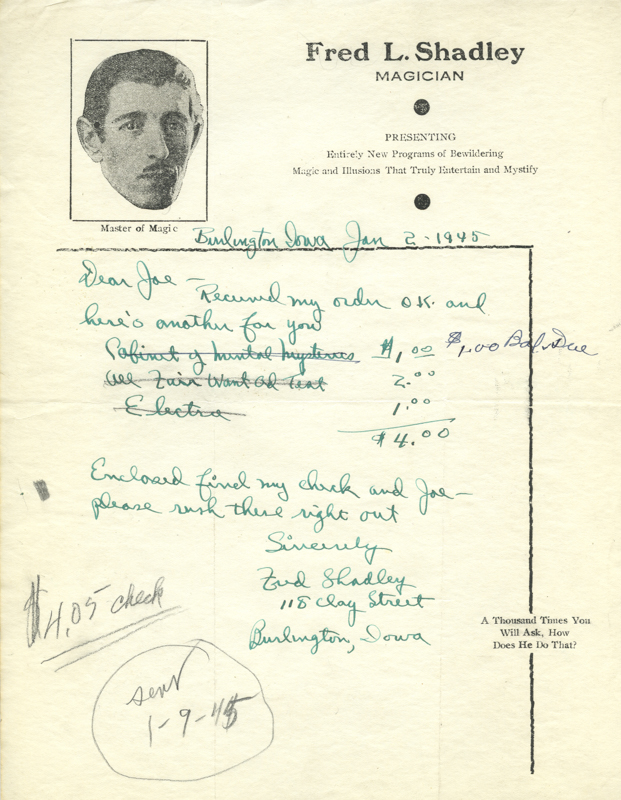 Fred L. Shadley
MAGICIAN
PRESENTING
Entirely New Programs of Bewildering
Magic and Illusions That Truly Entertain and Mystify
Master of Magic
Burlington Iowa Jan 2 - 1945
Dear Joe -
Received my order OK and
here's another for you
Cabinet of Mental Mysteries $1.00 $1.00 Bal. Due
All Fair Want Ad Test 2.00
Electra 1.00
$4.00
Enclosed find my check and Joe -
please rush these right out
Sincerely
Fred Shadley
118 Clay Street
Burlington, Iowa
$4.05 check
sent
1-9-45
A Thousand Times You
Will Ask, How
Does He Do That?